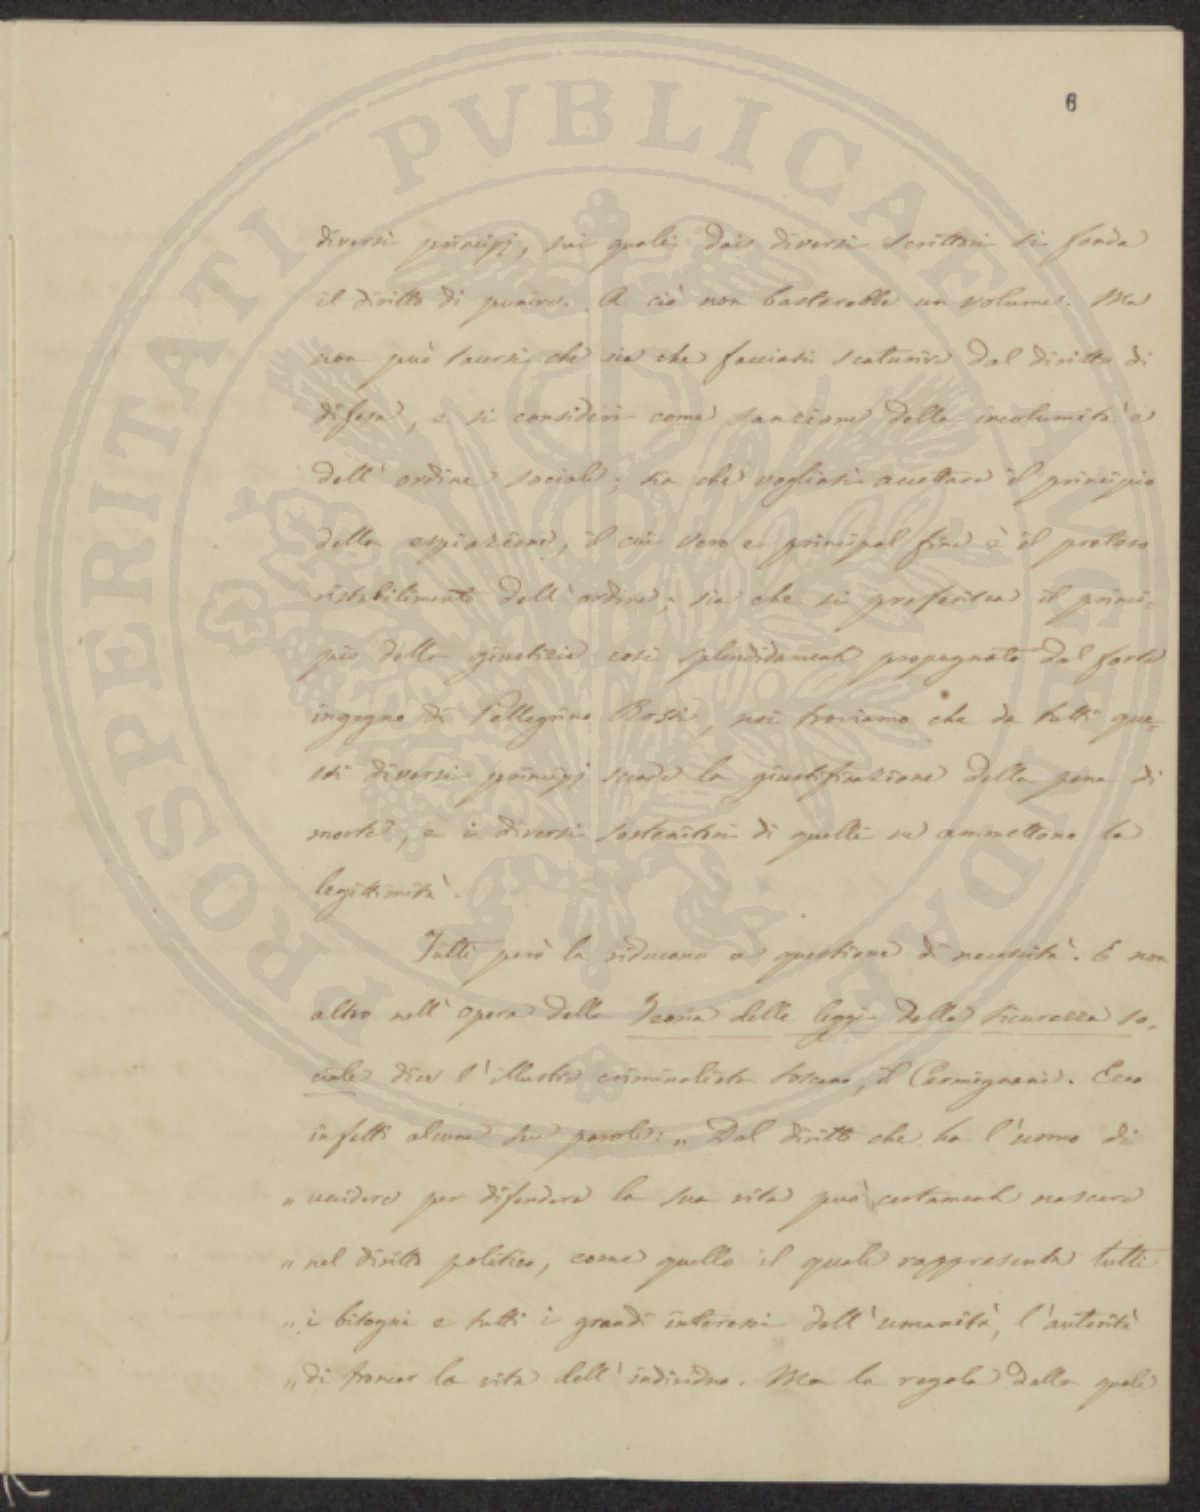 6
diversi principj, sui quali dai diversi scrittori si fonda
il diritto di punire. A ciò non basterebbe un volume. Ma
non può tacersi che sia che facciasi scaturire dal diritto di
difesa, e si consideri come sanzione della incolumità e
dell' ordine sociale; sia che vogliasi accettare il principio
della espiazione, il cui vero e principal fine è il preteso
ristabilimento dell' ordine; sia che si preferisca il princi-
pio della giustizia così splendidamente propugnato dal forte
ingegno di Pellegrino Rossi, noi troviamo che da tutti que-
sti diversi principj scende la giustificazione della pena di
morte, e i diversi sostenitori di quelli ne ammettono la
legittimità.
Tutti però la riducono a questione di necessità. E non
altro nell' opera della Teoria delle leggi della sicurezza so-
ciale dice l' illustre criminalista toscano, il Carmignani. Ecco
infatti alcune sue parole: „ Dal diritto che ha l' uomo di
„ uccidere per difendere la sua vita può certamente nascere
„ nel diritto politico, come quello il quale rappresenta tutti
„ i bisogni e tutti i grandi interessi dell' umanità, l' autorità
„ di troncar la vita dell' individuo. Ma la regola dalla quale
PROSPERITATI PVBLICAE AVGENDAE